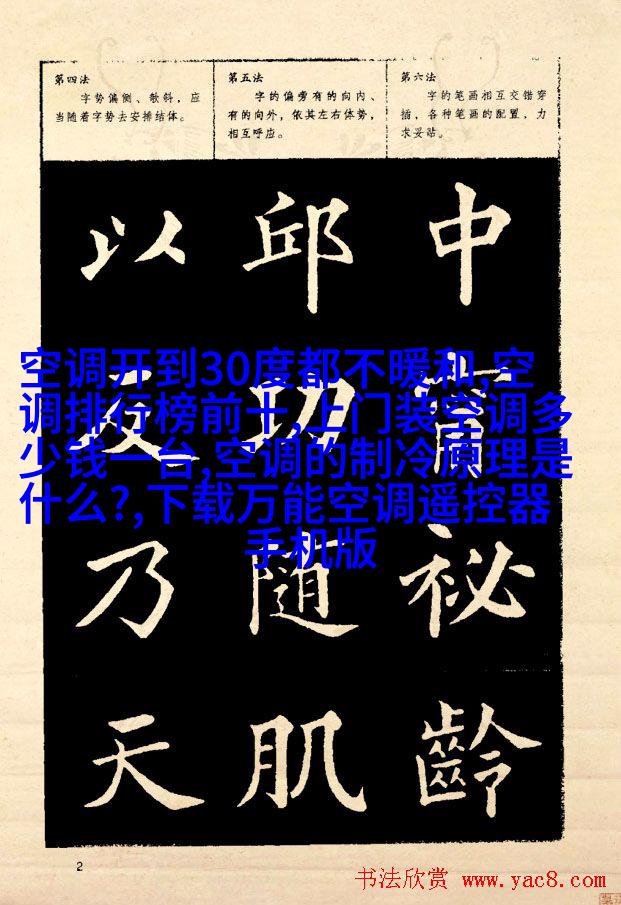 第四法
字势偏侧、欹斜，应
当随着字势去安排结体。
第五法
字的偏旁有的向内、
有的向外，依其左右体势，
相互呼应。
第六法
字的笔画相互交错穿
插，各种笔画的配置，力
求妥贴。
以 邱 中
空调开到30度都不暖和,空
调排行榜前十,上门装空调多
少钱一台,空调的制冷原理是
什么?,下载万能空调遥控器
手机版
及 功
乃 随 祕
天 肌 齡
2
书法欣赏 www.yac8.com